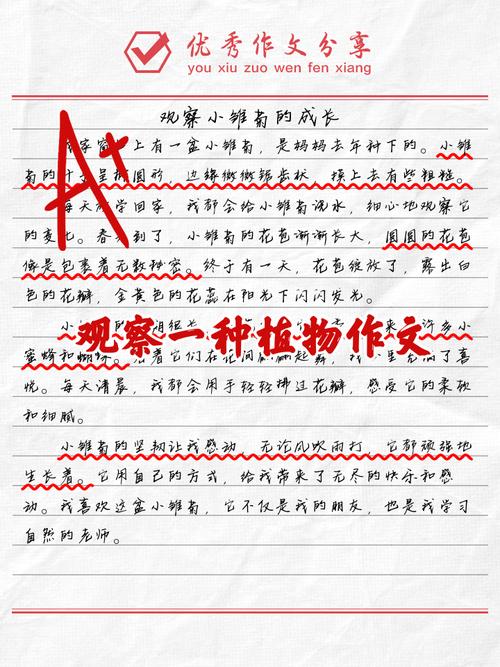 优秀作文分享
you xiu zuo wen fen xiang
A+
观察小雏菊的成长
家窗上有一盆小雏菊，是妈妈去年种下的。小雏
菊的叶呈椭圆形，边缘微微锯齿状，摸上去有些粗糙。
每天放学回家，我都会给小雏菊浇水，细心地观察它
的变化。春天到了，小雏菊的花苞渐渐长大，圆圆的花苞
像是包裹着无数秘密。终于有一天，花苞绽放了，露出白
色的花瓣，金黄色的花蕊在阳光下闪闪发光。
小的花期很长，来许多小
观察一种植物作文
蜜蜂和蝴蝶。看着它们在花间翩翩起舞，我心里充满了喜
悦。每天清晨，我都会用手轻轻拂过花瓣，感受它的柔软
和细腻。
小雏菊的坚韧让我感动，无论风吹雨打，它都顽强地
生长着。它用自己的方式，给我带来了无尽的快乐和感
动。我喜欢这盆小雏菊，它不仅是我的朋友，也是我学习
自然的老师。